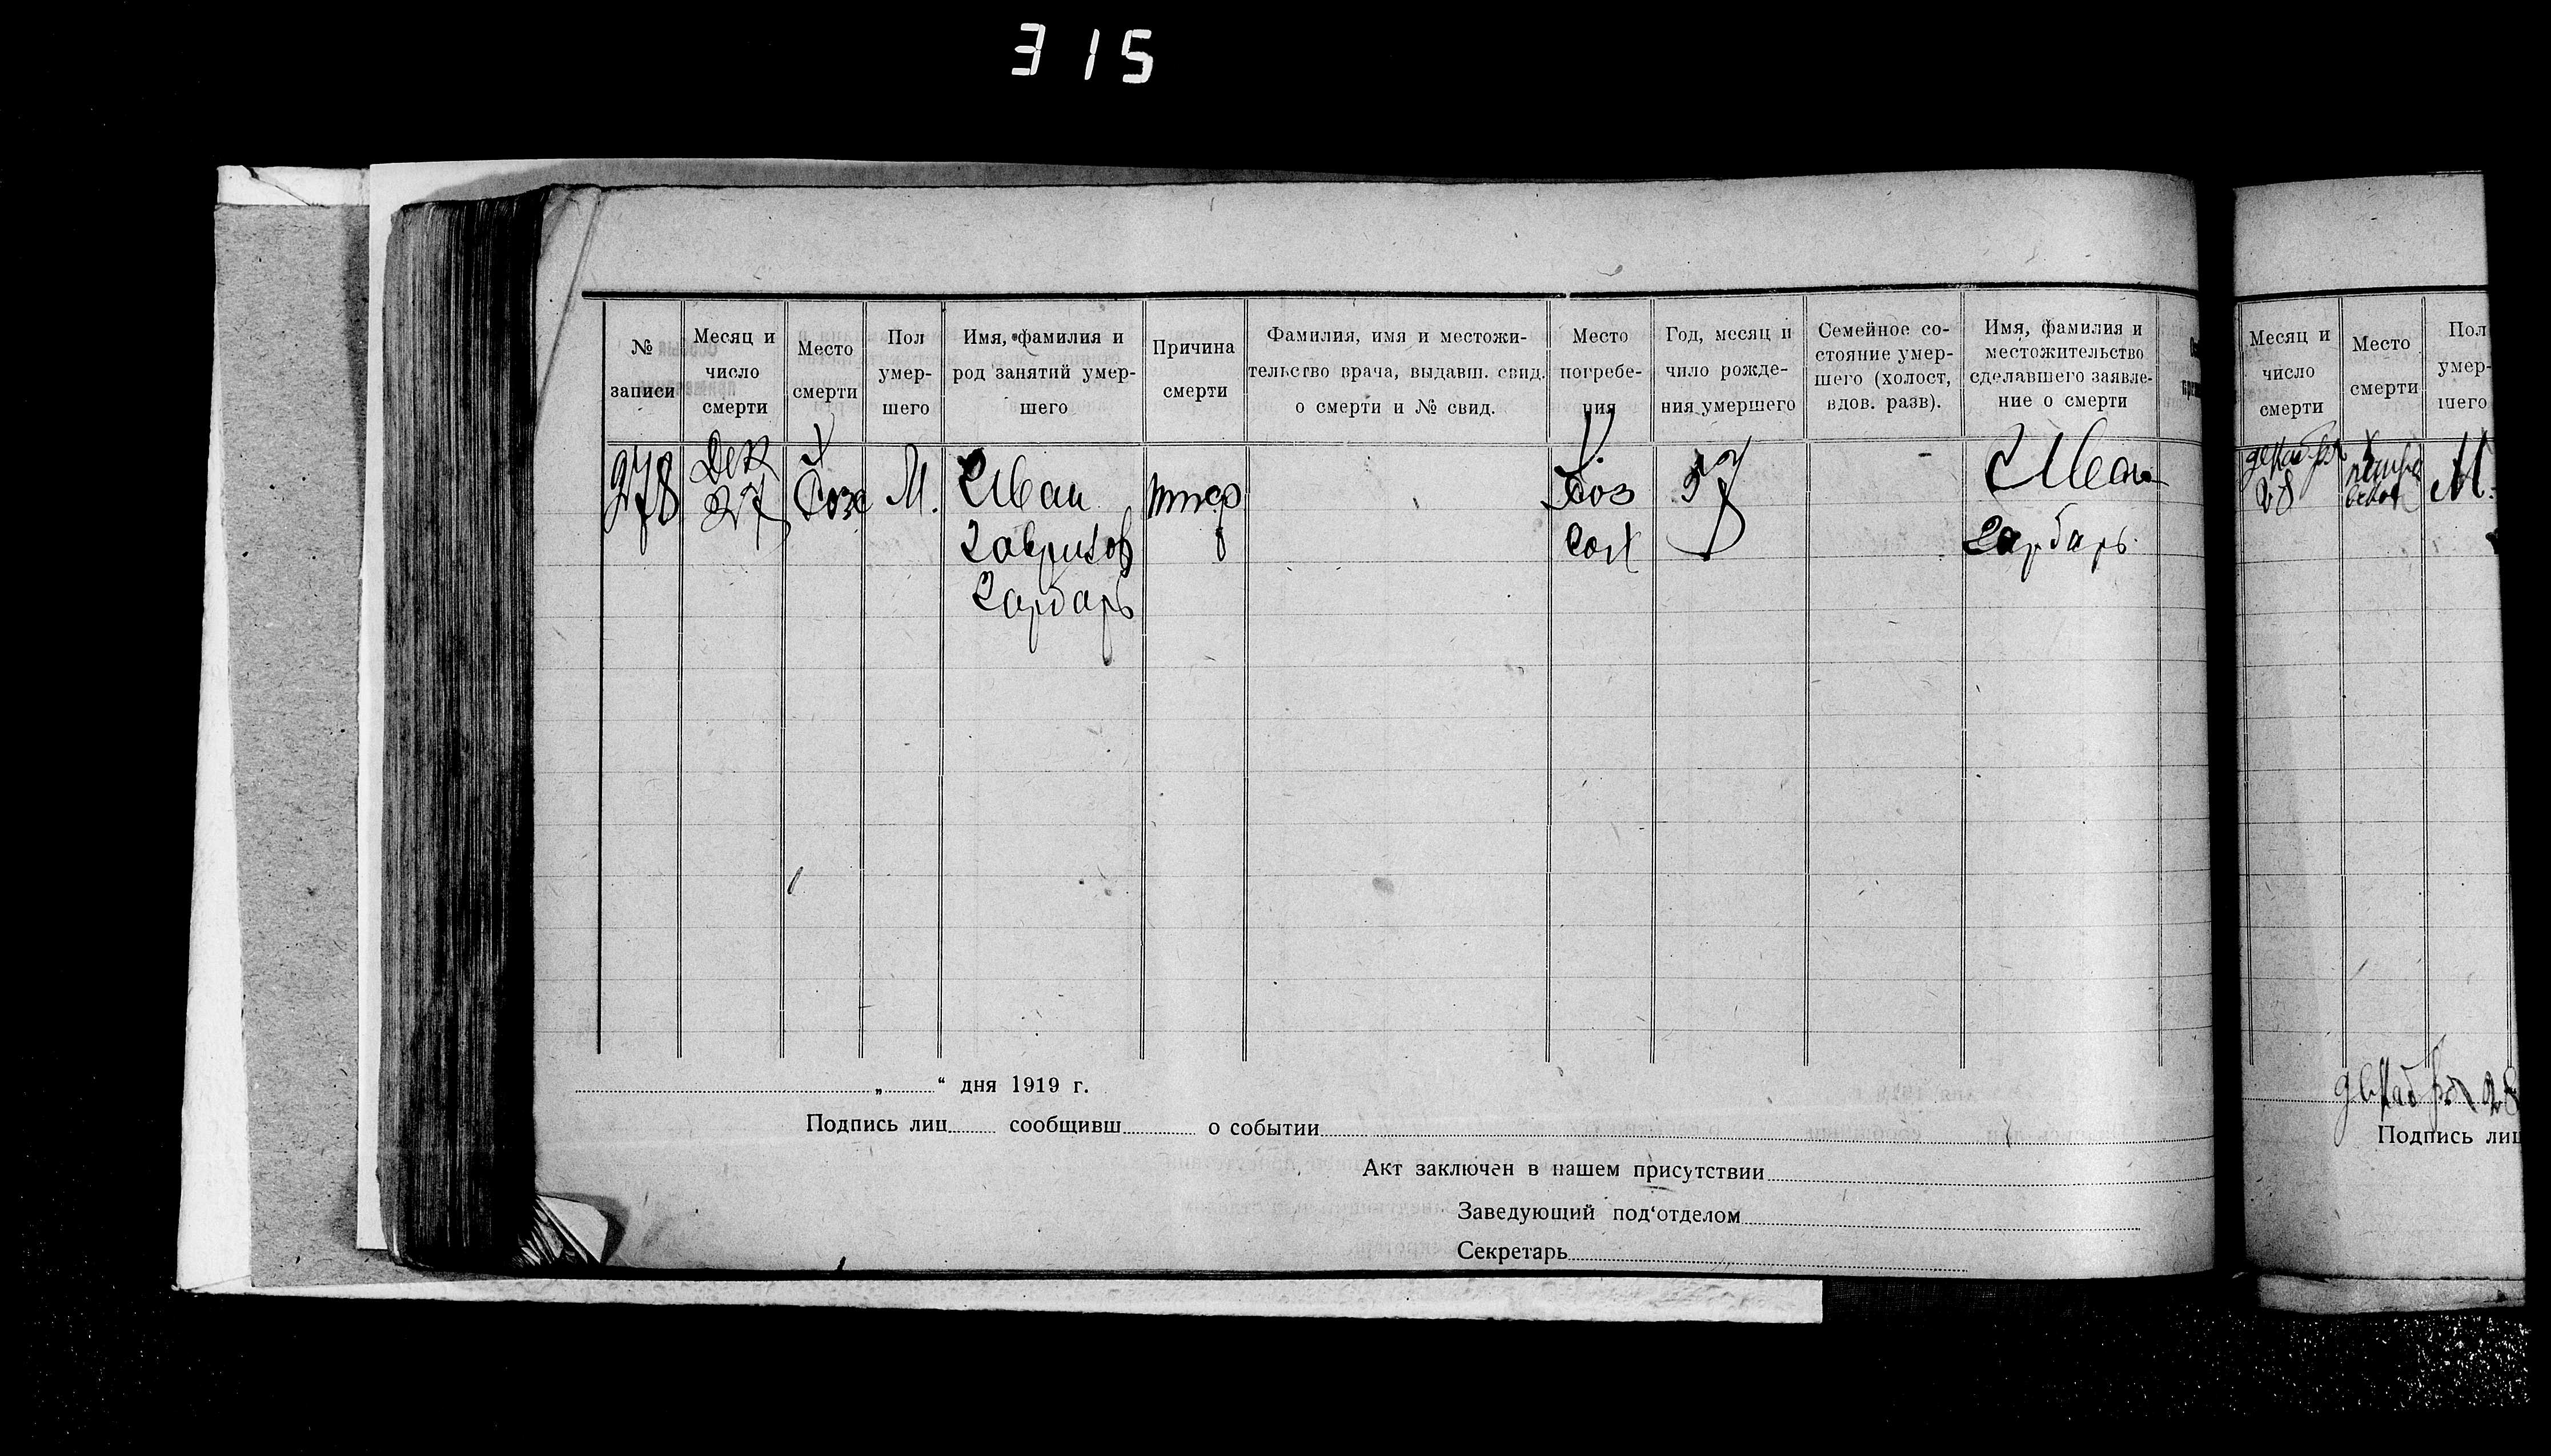 315
№ записи
Месяц и число смерти
Место смерти
Пол умер- шего
Имя, фамилия и род занятий умер- шего
Причина смерти
Фамилия, имя и местожи- тельство врача, выдавш. свид. о смерти и № свид.
Место погребе- ния
Год, месяц и чило рожде- ния умершего
Семейное со- стояние умер- шего (холост, вдов. разв).
Имя, фамилия и местожительство сделавшего заявле- ние о смерти
978
Дек 27
М.
Иван
Гарбарь
тиф
57
-
Иван
Гарбарь
„ “ дня 1919 г.
Подпись лиц сообщивш о событии
Акт заключен в нашем присутствии
Заведующий под‘отделом
Секретарь
Месяц и число смерти
Место смерти
Пол умер- шего
декабря 28
М.
декабря 28
Подпись лиц